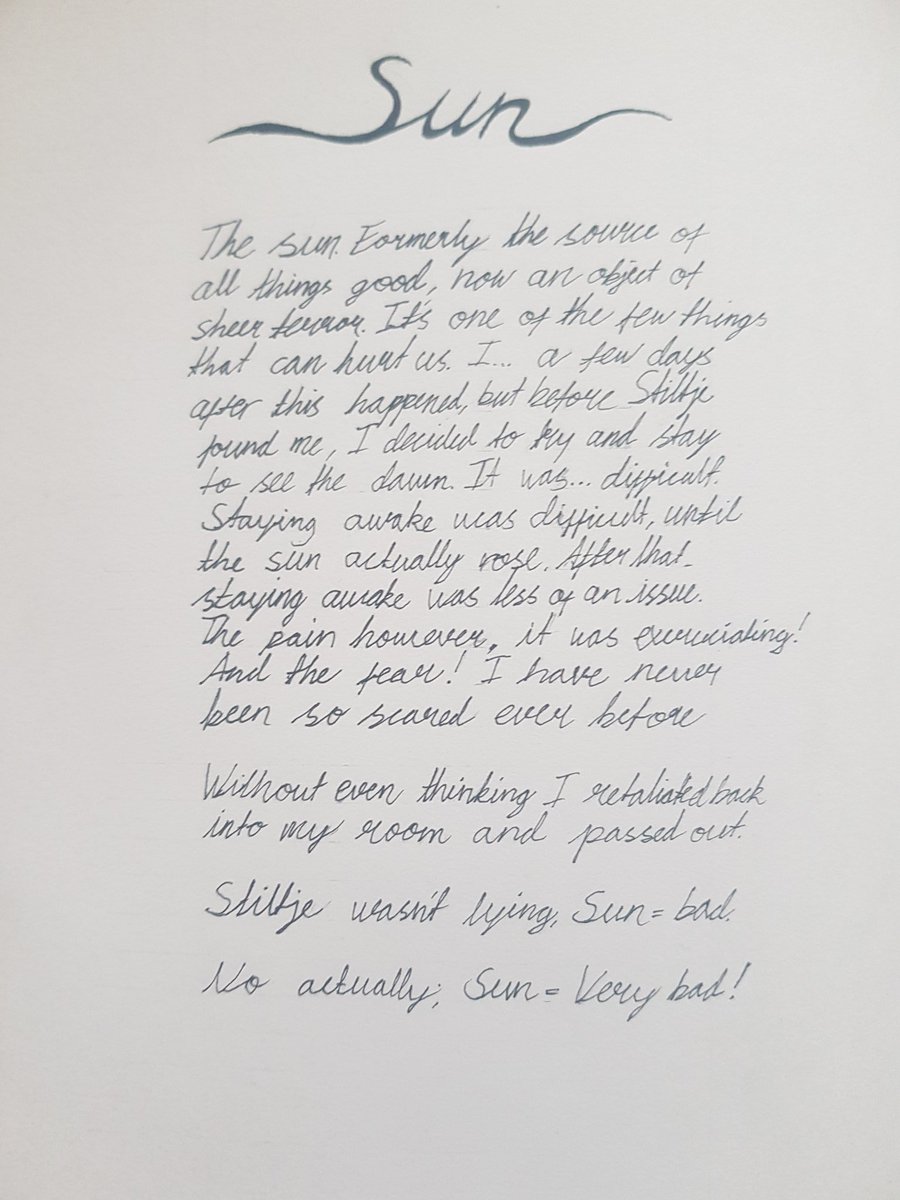 Sun
The sun. Formerly the source of
all things good, now an object of
sheer terror. It's one of the few things
that can hurt us. I... a few days
after this happened, but before Stiltje
found me, I decided to try and stay
to see the dawn. It was... difficult.
Staying awake was difficult, until
the sun actually rose. After that
staying awake was less of an issue.
The pain however, it was excruciating!
And the fear! I have never
been so scared ever before
Without even thinking I retaliated back
into my room and passed out.
Stiltje wasn't lying, Sun = bad.
No actually; Sun = Very bad!